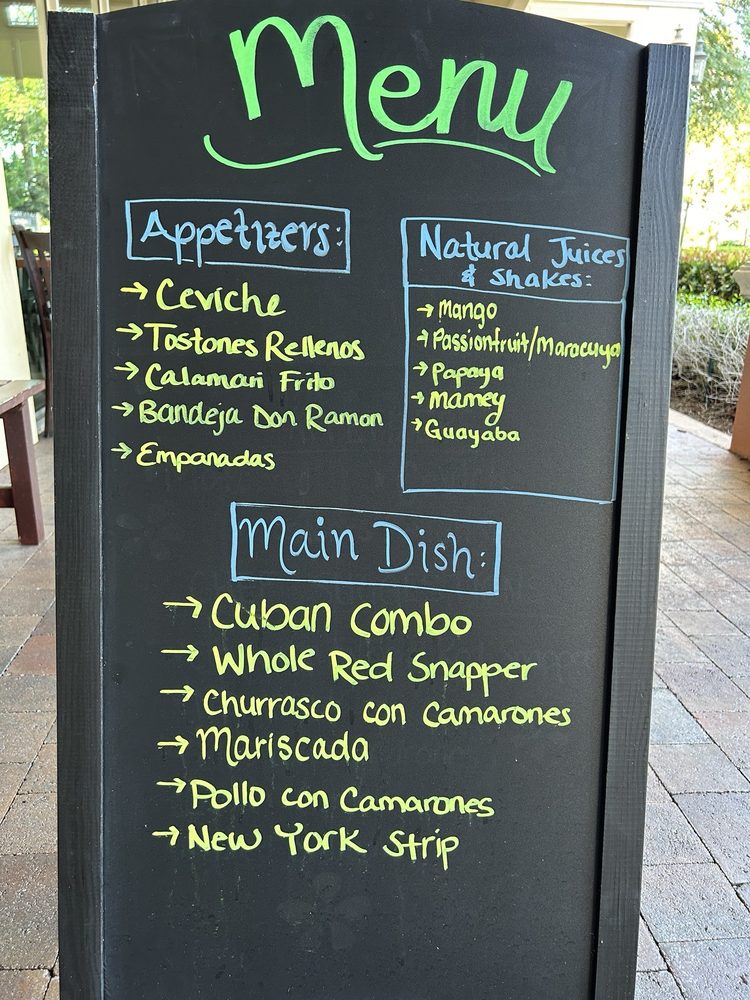 Menu
Appetizers:
→ Ceviche
→ Tostones Rellenos
→ Calamari Frito
→ Bandeja Don Ramon
→ Empanadas
Natural Juices
& Shakes:
→ Mango
→ Passionfruit/Maracuya
→ Papaya
→ Mamey
→ Guayaba
Main Dish:
→ Cuban Combo
→ Whole Red Snapper
→ Churrasco con Camarones
→ Mariscada
→ Pollo con Camarones
→ New York Strip